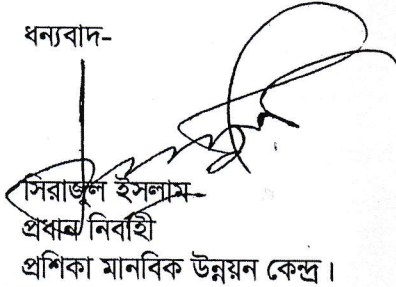 ধন্যবাদ-
সিরাজুল ইসলাম
প্রধান নির্বাহী
প্রশিকা মানবিক উন্নয়ন কেন্দ্র।